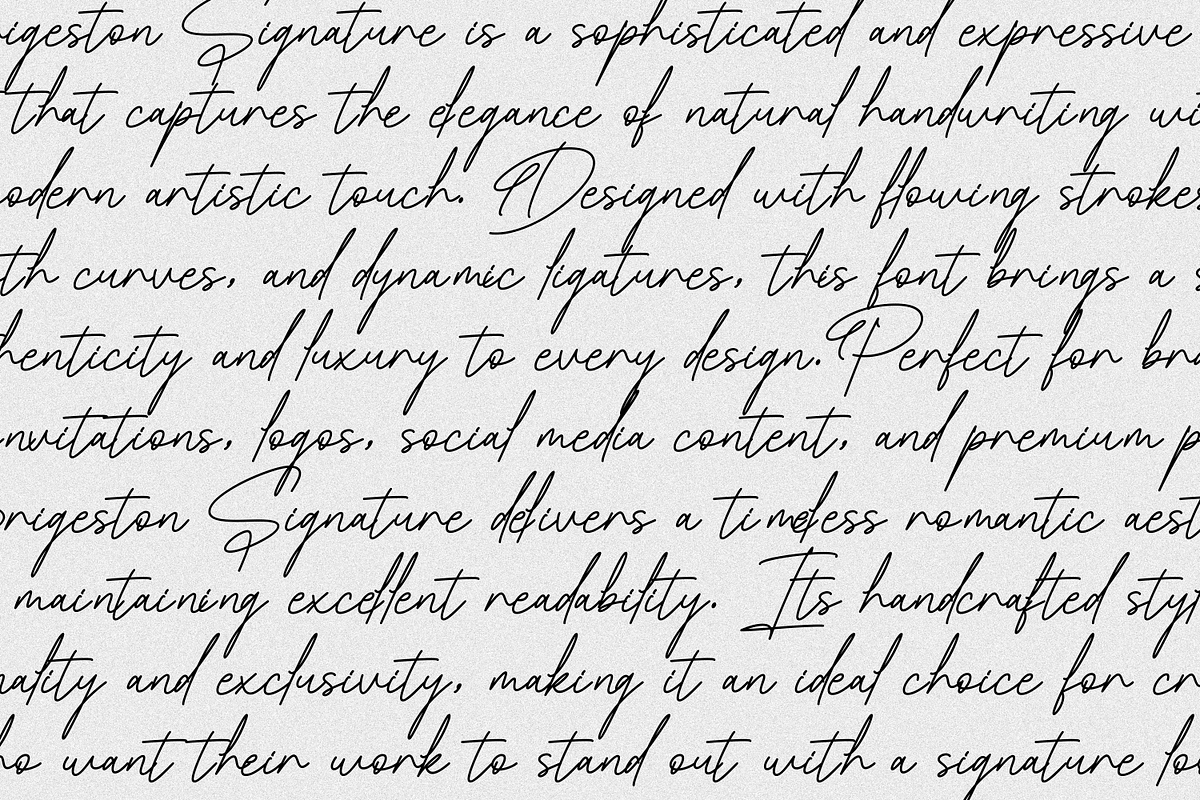 rigeston Signature is a sophisticated and expressive
that captures the elegance of natural handwriting wi
odern artistic touch. Designed with flowing strokes
th curves, and dynamic ligatures, this font brings a s
henticity and luxury to every design. Perfect for bra
nvitations, logos, social media content, and premium p
origeston Signature delivers a timeless romantic aest
maintaining excellent readability. Its handcrafted styl
nality and exclusivity, making it an ideal choice for cr
ho want their work to stand out with a signature loo